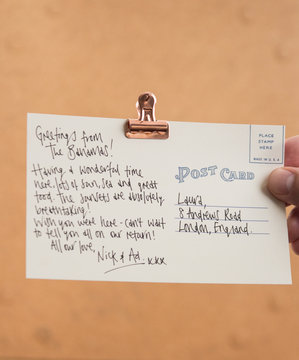 Greetings from
The Bahamas!
Having a wonderful time
here, lots of sun, sea and great
food. The sunsets are absolutely
breathtaking!
Wish you were here - can't wait
to tell you all on our return!
All our love,
Nick & Ad. xxx
PLACE
STAMP
HERE
MADE IN U.S.A
POST CARD
Laura,
8 Andrews Road
London, England.